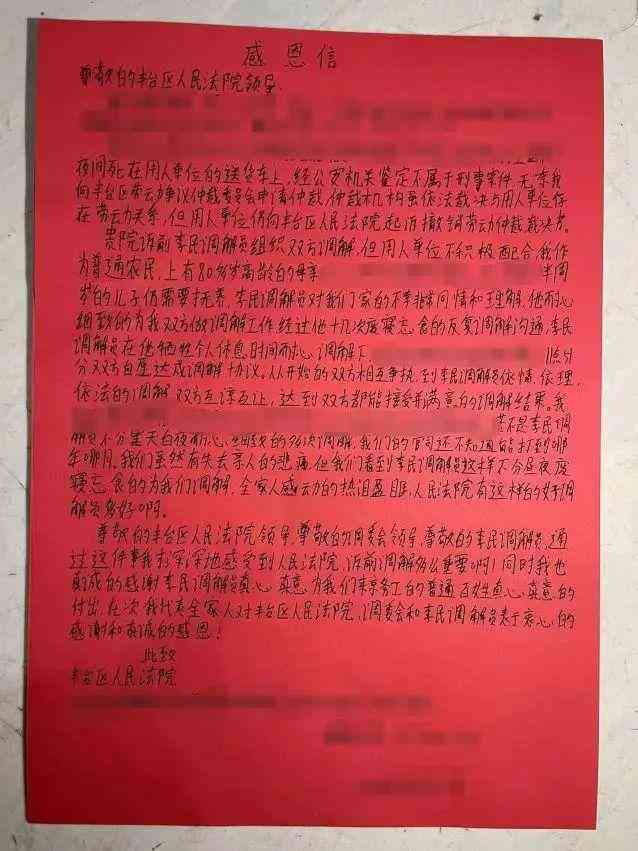 感恩信
尊敬的丰台区人民法院领导.
夜间死在用人单位的送货车上,经公安机关鉴定不属于刑事案件,无奈我
向丰台区劳动争议仲裁委员会申请仲裁,仲裁机构虽依法裁决与用人单位存
在劳动关系,但用人单位仍向丰台区人民法院起诉撤销劳动仲裁裁决书.
贵院诉前李民调解员组织双方调解,但用人单位不积极配合,我作
为普通农民,上有80多岁高龄的母亲 半周
岁的儿子仍需要抚养,李民调解员对我们家的不幸非常同情和理解,他耐心
细致的为我双方做调解工作,经过他十几次废寝忘食的反复调解沟通,李民
调解员在他牺牲个人休息时间耐心调解下 11点51
分双方自愿达成调解协议。从开始的双方相互争执,到李民调解员依情、依理,
依法的调解,双方互谅互让,达到双方都能接受和满意的调解结果。我
若不是李民调
解员不分星夫白夜耐心 的多次调解,我们的官司还不知道能打到哪
年哪月,我们虽然有失去亲人的悲痛,但我们看到李民调解员这样不分昼夜废
寝忘食的为我们调解,全家人感动的热泪盈眶,人民法院有这样的好调
解员多好啊。
尊敬的丰台区人民法院领导,尊敬的调委会领导,尊敬的李民调解员,通
过这件事我深深地感受到人民法院,诉前调解多么重要啊!同时我也
真诚的感谢李民调解员真心真意为我们来京务工的普通百姓真心真意的
付出,在次我代表全家人对丰台区人民法院,调委会和李民调解员表于衷心的
感谢和真诚的感恩!
此致
丰台区人民法院